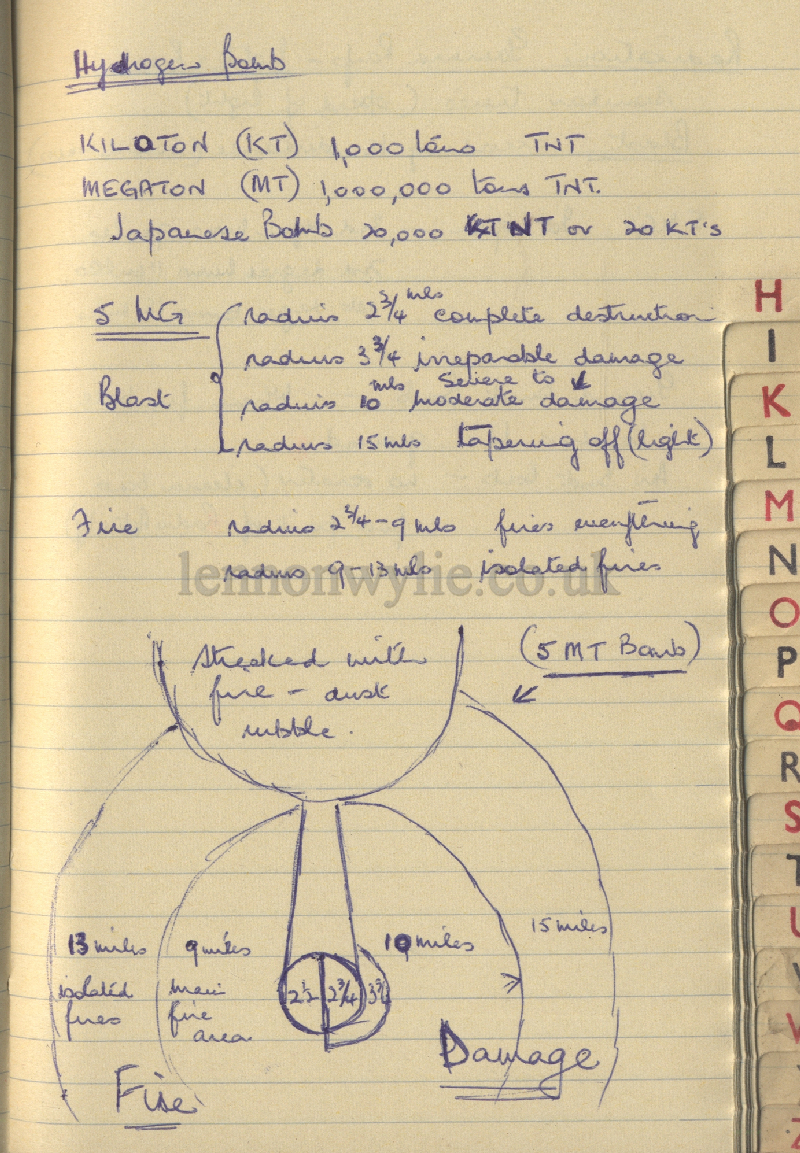 Hydrogen Bomb
KILOTON (KT) 1,000 tons TNT
MEGATON (MT) 1,000,000 tons TNT.
Japanese Bomb 20,000 TNT or 20 KT's
5 MG
Blast
radius 2 3/4 mls complete destruction
radius 3 3/4 irreparable damage
Severe to
radius 10 mls moderate damage
radius 15 mls tapering off (light)
Fire radius 2 3/4 - 9 mls fires
radius 9-13 mls isolated fires
lennonwylie.co.uk
(5 MT Bomb)
Streaked with
fire - dust
rubble.
15 miles
13 miles
isolated
fires
9 miles
main
fire
area
10 miles
2 1/2
2 3/4
3 3/4
Fire
Damage
H
I
K
L
M
N
O
P
Q
R
S
T
U
V
W
Z